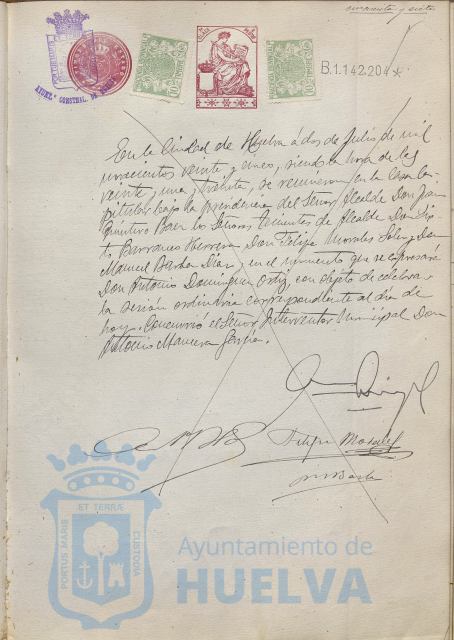 cincuenta y siete
B.1.142.204 *
AYUNT. CONSTNAL. DE
En la Ciudad de Huelva á dos de Julio de mil
novecientos veinte y cinco, siendo la hora de las
veinte, una, treinta, se reunieron en la Casa Ca-
pitular bajo la presidencia del Señor Alcalde Don
Quintero Baez los Señores tenientes de Alcalde Don Six
to Barranco Herrera Don Felipe Morales Soler y Don
Manuel Barba Díaz, y en el momento que se expresará
Don Antonio Dominguez Ortiz, con objeto de celebrar
la sesión ordinaria correspondiente al día de
hoy. Concurrió el Señor Interventor Municipal Don
Antonio Mancera
Felipe Morales
M Barba
ET TERRÆ
PORTUS MARIS
CUSTODIA
Ayuntamiento de
HUELVA